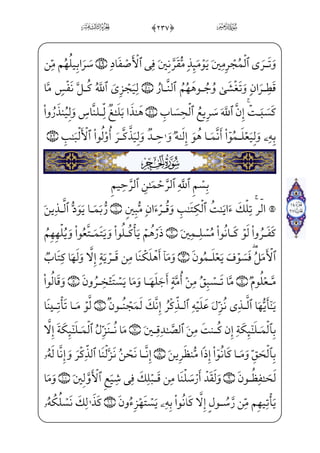 ﴿٢٣٧﴾
وَتَرَى ٱلْمُجْرِمِينَ يَوْمَئِذٍ مُّقَرَّنِينَ فِى ٱلْأَصْفَادِ ۝ سَرَابِيلُهُم مِّن
قَطِرَانٍ وَتَغْشَىٰ وُجُوهَهُمُ ٱلنَّارُ ۝ لِيَجْزِىَ ٱللَّهُ كُلَّ نَفْسٍ مَّا
كَسَبَتْ ۚ إِنَّ ٱللَّهَ سَرِيعُ ٱلْحِسَابِ ۝ هَٰذَا بَلَٰغٌ لِّلنَّاسِ وَلِيُنذَرُوا۟
بِهِۦ وَلِيَعْلَمُوٓا۟ أَنَّمَا هُوَ إِلَٰهٌ وَٰحِدٌ وَلِيَذَّكَّرَ أُو۟لُوا۟ ٱلْأَلْبَٰبِ ۝
بِسْمِ ٱللَّهِ ٱلرَّحْمَٰنِ ٱلرَّحِيمِ
الٓر ۚ تِلْكَ ءَايَٰتُ ٱلْكِتَٰبِ وَقُرْءَانٍ مُّبِينٍ ۝ رُّبَمَا يَوَدُّ ٱلَّذِينَ
كَفَرُوا۟ لَوْ كَانُوا۟ مُسْلِمِينَ ۝ ذَرْهُمْ يَأْكُلُوا۟ وَيَتَمَتَّعُوا۟ وَيُلْهِهِمُ
ٱلْأَمَلُ ۖ فَسَوْفَ يَعْلَمُونَ ۝ وَمَآ أَهْلَكْنَا مِن قَرْيَةٍ إِلَّا وَلَهَا كِتَابٌ
مَّعْلُومٌ ۝ مَّا تَسْبِقُ مِنْ أُمَّةٍ أَجَلَهَا وَمَا يَسْتَـْٔخِرُونَ ۝ وَقَالُوا۟
يَٰٓأَيُّهَا ٱلَّذِى نُزِّلَ عَلَيْهِ ٱلذِّكْرُ إِنَّكَ لَمَجْنُونٌ ۝ لَّوْ مَا تَأْتِينَا
بِٱلْمَلَٰٓئِكَةِ إِن كُنتَ مِنَ ٱلصَّٰدِقِينَ ۝ مَا نُنَزِّلُ ٱلْمَلَٰٓئِكَةَ إِلَّا
بِٱلْحَقِّ وَمَا كَانُوٓا۟ إِذًا مُّنظَرِينَ ۝ إِنَّا نَحْنُ نَزَّلْنَا ٱلذِّكْرَ وَإِنَّا لَهُۥ
لَحَٰفِظُونَ ۝ وَلَقَدْ أَرْسَلْنَا مِن قَبْلِكَ فِى شِيَعِ ٱلْأَوَّلِينَ ۝ وَمَا
يَأْتِيهِم مِّن رَّسُولٍ إِلَّا كَانُوا۟ بِهِۦ يَسْتَهْزِءُونَ ۝ كَذَٰلِكَ نَسْلُكُهُۥ